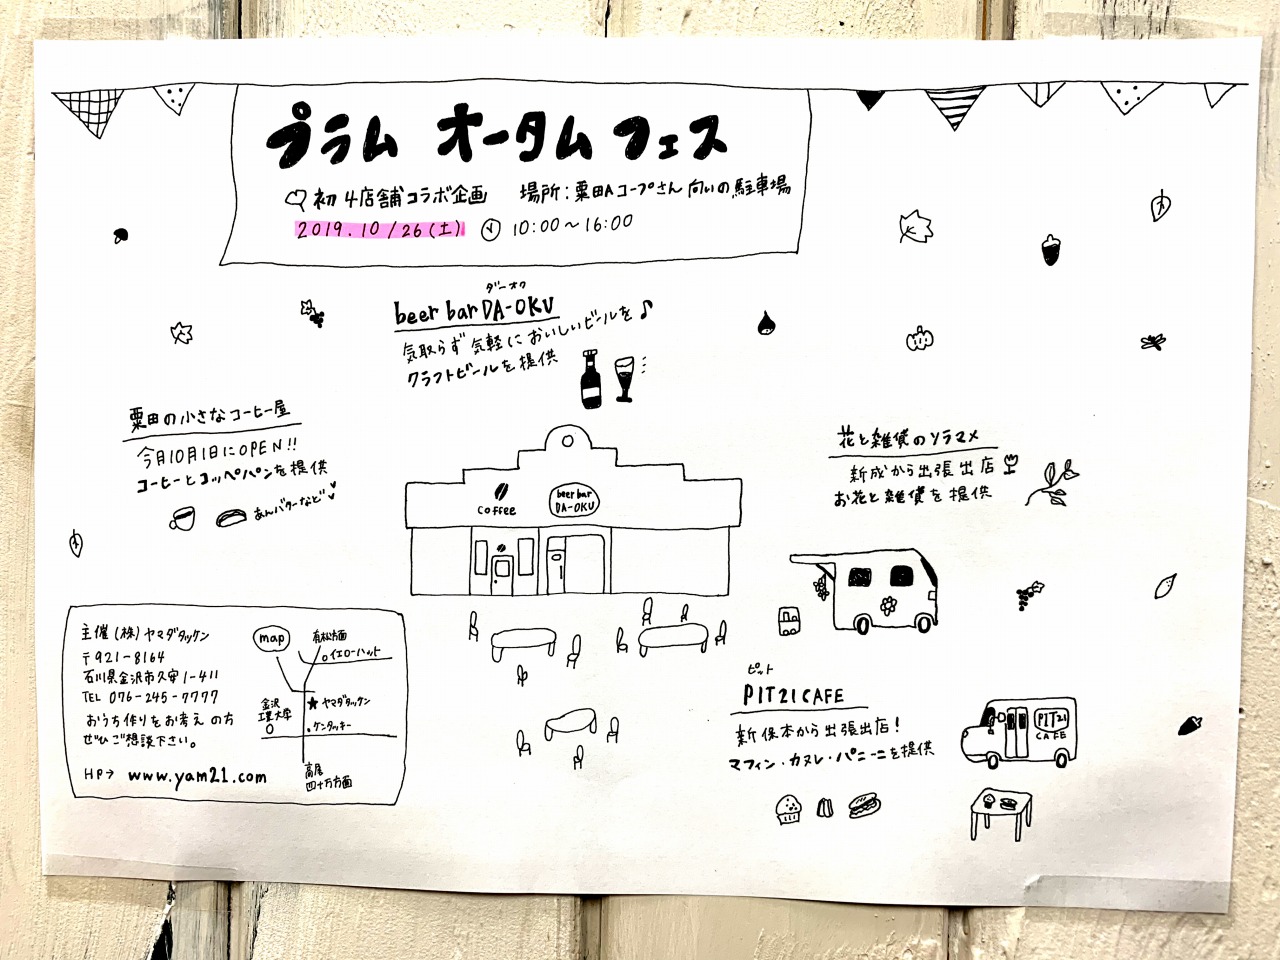 プラム オータム フェス
初 4店舗コラボ企画 場所：粟田Aコープさん 向いの駐車場
2019.10/26(土) 10:00～16:00
ダーオク
beer bar DA-OKU
気取らず 気軽に おいしいビールを♪
クラフトビールを提供
粟田の小さなコーヒー屋
今月10月1日にOPEN!!
コーヒーとコッペパンを提供
あんバターなど
coffee
beer bar
DA-OKU
花と雑貨のソラマメ
新成から出張出店
お花と雑貨を提供
ピット
PIT21CAFE
新保本から出張出店！
マフィン・カヌレ・パニーニを提供
PIT21
CAFE
主催（株）ヤマダタッケン
〒921-8164
石川県金沢市久安1-411
TEL 076-245-7777
おうち作りをお考えの方
ぜひご相談下さい。
HP→ www.yam21.com
map
有松方面
イエローハット
★ヤマダタッケン
金沢
工業大学
ケンタッキー
高尾
四十万方面